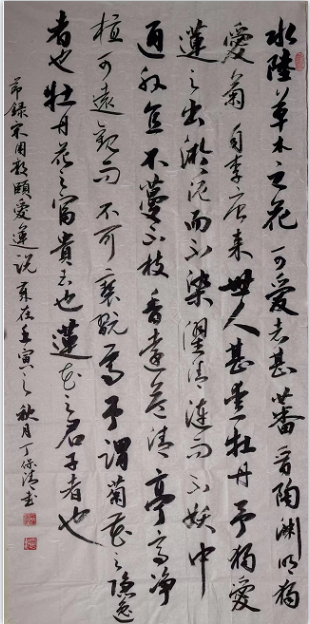 水陸草木之花可愛者甚蕃晋陶渊明獨
愛菊自李唐来世人甚愛牡丹予獨愛
蓮之出淤泥而不染濯清漣而不妖中
通外直不蔓不枝香遠益清亭亭净
植可遠觀而不可褻玩焉予謂菊花之隐逸
者也牡丹花之富貴者也蓮花之君子者也
节録宋周敦頤愛蓮説 岁在壬寅之秋月丁保清书